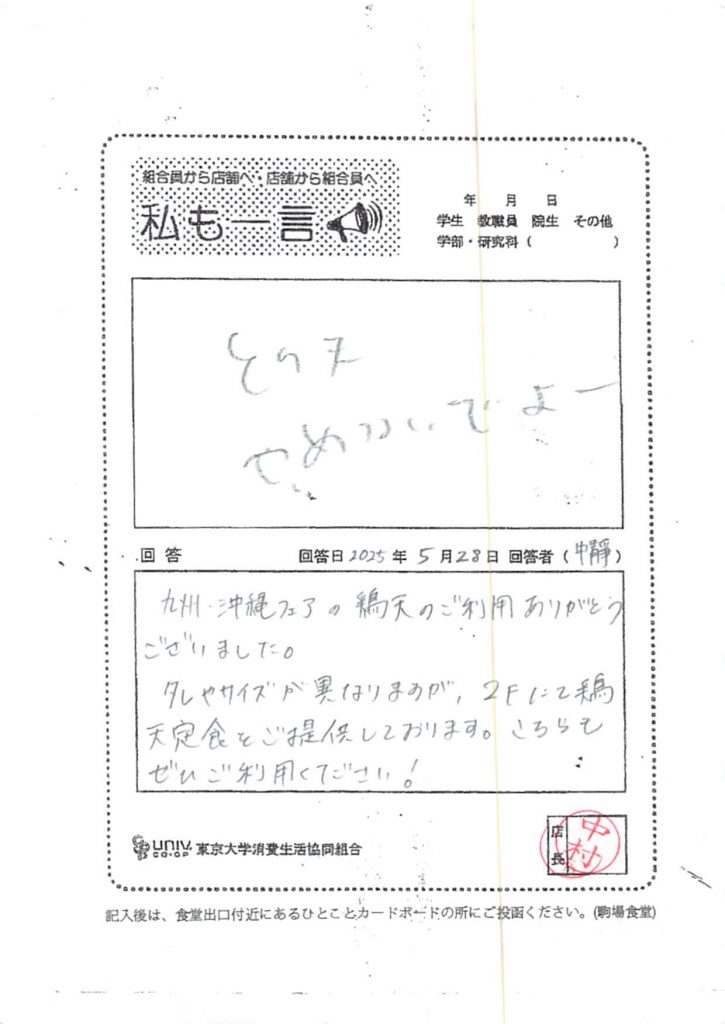 組合員から店舗へ・店舗から組合員へ
私も一言
年 月 日
学生 教職員 院生 その他
学部・研究科 ( )
その天
やめないでよー
回答
回答日 2025 年 5 月 28 日 回答者 (中静)
九州・沖縄フェアの鶏天のご利用ありがとう
ございました。
タレやサイズが異なりますが、2Fにて鶏
天定食をご提供しております。こちらも
ぜひご利用ください!
UNIV. CO-OP 東京大学消費生活協同組合
店長
中村
記入後は、食堂出口付近にあるひとことカードボードの所にご投函ください。(駒場食堂)